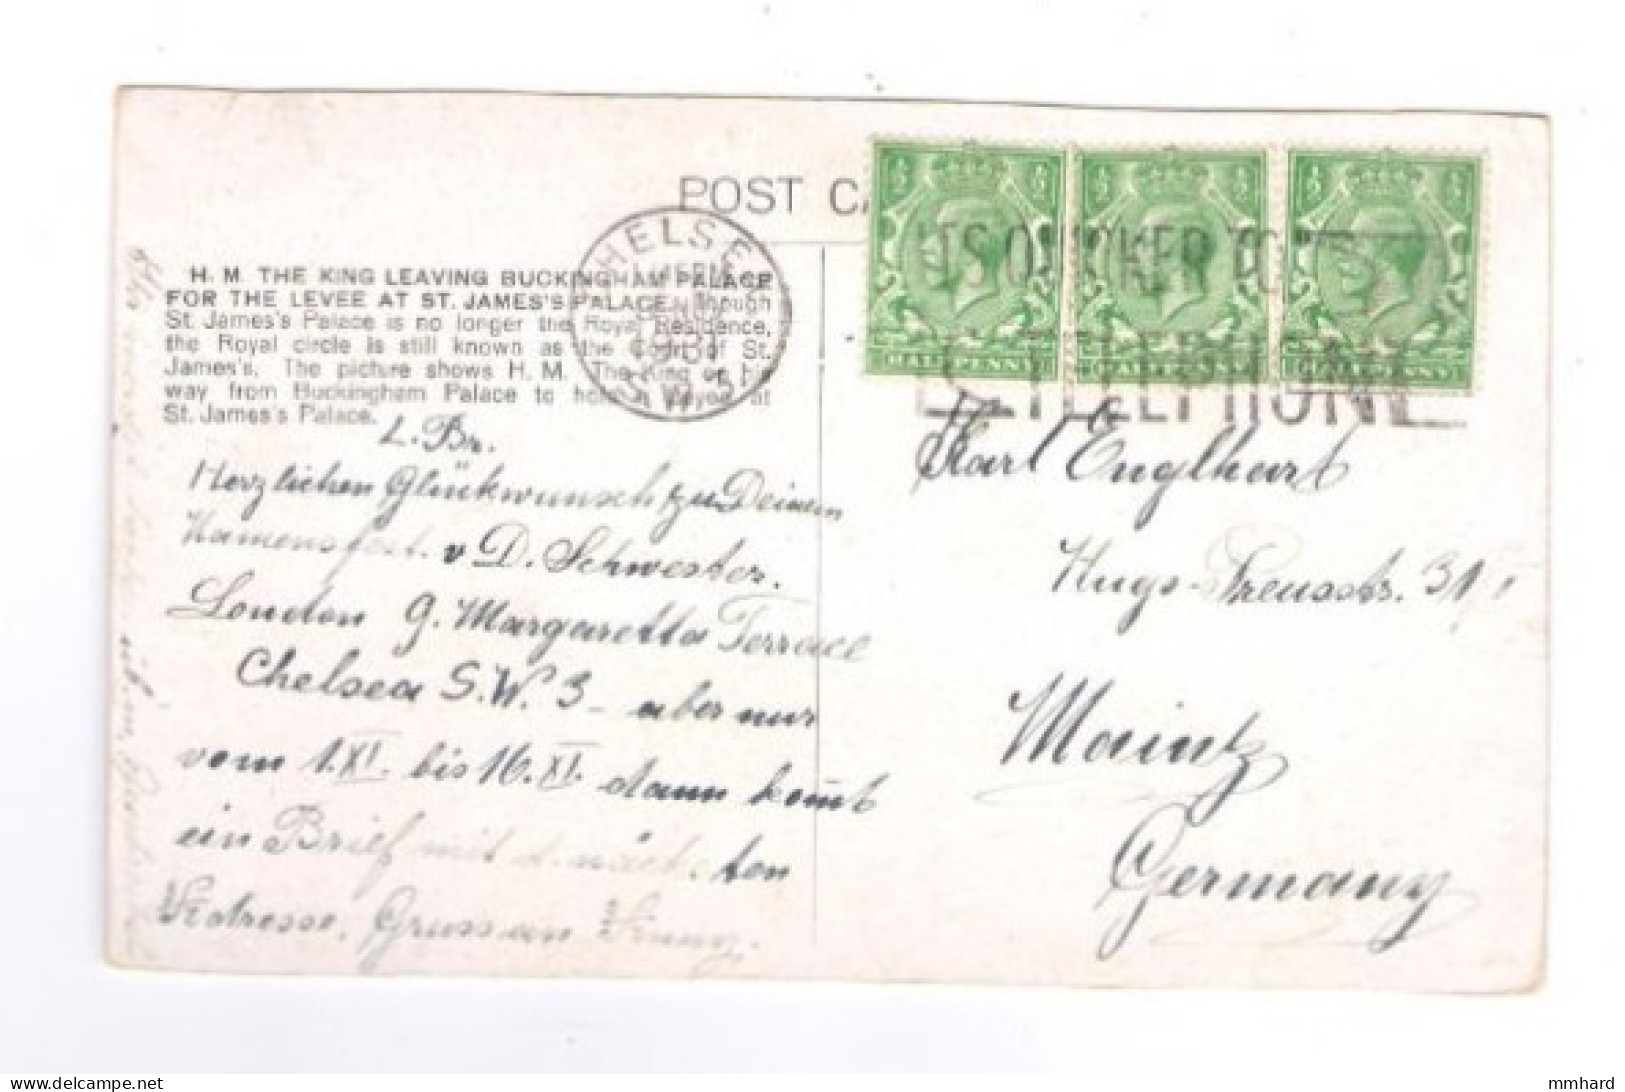 POST
CHELSEA
S.W.3.
IT'S QUICKER TO
TELEPHONE
½ ½
½ ½
½ ½
HALFPENNY
HALFPENNY
HALFPENNY
H. M. THE KING LEAVING BUCKINGHAM PALACE
FOR THE LEVEE AT ST. JAMES'S PALACE. Though
St. James's Palace is no longer the Royal Residence,
the Royal circle is still known as the Court of St.
James's. The picture shows H. M. The King on his
way from Buckingham Palace to hold a Levee at
St. James's Palace.
L. Br.
Herzlichen Glückwunsch zu Deinem
Namensfest. v D. Schwester.
London 9. Margaretta Terrace
Chelsea S.W. 3 – aber nur
vom 1.XI. bis 16.XI. dann kom̄t
ein Brief mit d. nächsten
Adresse. Gruss an
Karl Englhart
31
Mainz
Germany
mmhard